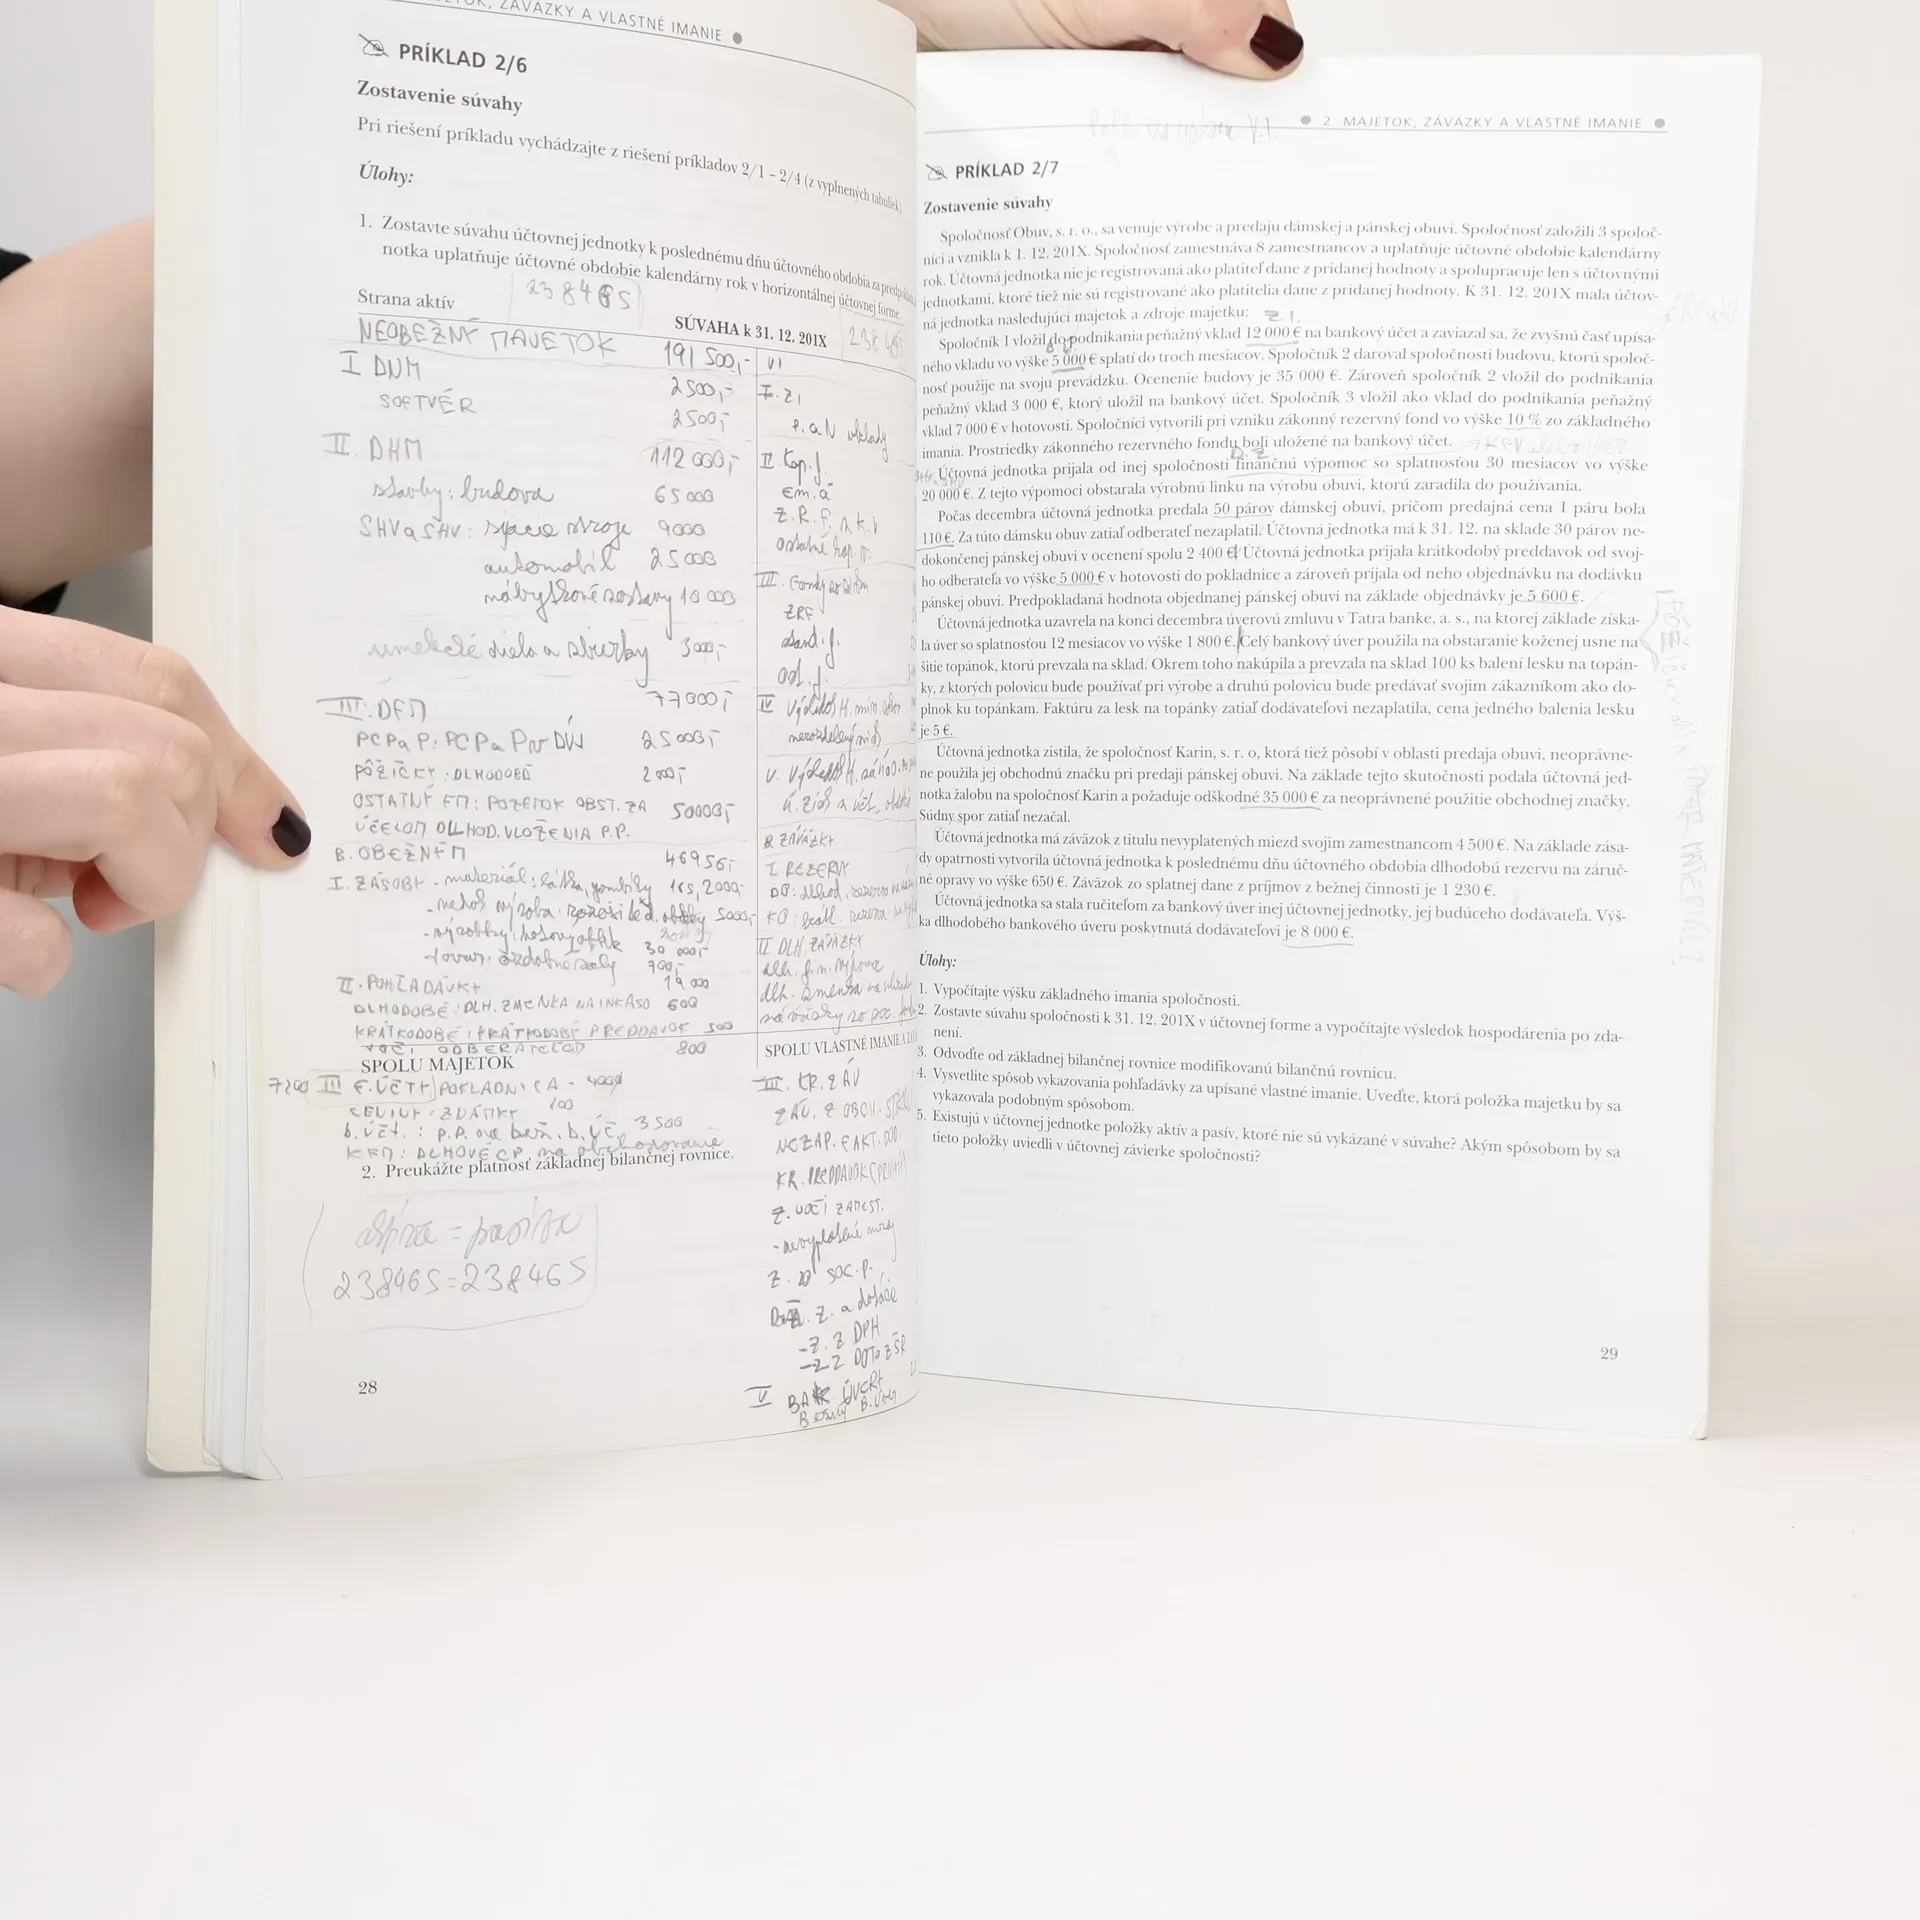 MAJETOK, ZÁVÄZKY A VLASTNÉ IMANIE
PRÍKLAD 2/6
Zostavenie súvahy
Pri riešení príkladu vychádzajte z riešení príkladov 2/1 – 2/4 (z vyplnených tabuliek).
Úlohy:
1. Zostavte súvahu účtovnej jednotky k poslednému dňu účtovného obdobia za
notka uplatňuje účtovné obdobie kalendárny rok v horizontálnej účtovnej forme.
238465
Strana aktív
SÚVAHA k 31. 12. 201X
238465
NEOBEŽNÝ MAJETOK 191 500,- VI
I DNM 2500,- I. ZI
SOFTVÉR 2500,- P. a N vklady
II. DHM 112 000,- II Kap. f.
stavby: budova 65000 Em. á
SHV a SHV: šijacie stroje 9000 Z. R. F. z k. v
automobil 25000 Ostatné kap. f.
nábytkové zostavy 10 000 III. Fondy zo
ZRF
umelecké diela a zbierky 3000,- štand. f.
Ost. f.
III. DFM 77000,- IV. Výsledok H. min.
PCP a P: PCP a P v DÚJ 25000,- nerozdelený
PÔŽIČKY: DLHODOBÁ 2000,- V. Výsledok H.
OSTATNÝ FM: POZEMOK OBST. ZA 50000,-
ÚČELOM DLHOD. VLOŽENIA P.P. B. ZÁVÄZKY
B. OBEŽNÝ M 46956,- I REZERVY
I. ZÁSOBY - materiál: látka, gombíky 165, 2000,-
- nedok výroba: 5000,-
- výrobky: 30 000,- II DLH. ZÁVÄZKY
- tovar: ozdobné 700,- dlh. fin. výpomoc
II. POHĽADÁVKY 19 000
DLHODOBÉ: DLH. ZMENKA NA INKASO 600
KRÁTKODOBÉ: KRÁTKODOBÝ PREDDAVOK 500
VOČI ODBERATEĽOM 800
SPOLU MAJETOK
SPOLU VLASTNÉ IMANIE A
7200 III F. ÚČTY POKLADNICA - 4000 III. KR. ZÁV
CENINY: ZNÁMKY 100 ZÁV. Z OBCH.
b. účt.: p.p. na bež. b. úč. 3500 NEZAP. FAKT. DOD.
KFM: DLHOVÉ CP na obchodovanie
KR. PREDDAVOK
2. Preukážte platnosť základnej bilančnej rovnice.
Z. VOČI ZAMEST.
- nevyplatené mzdy
aktíva = pasíva
Z. SOC. P.
238465 = 238465
Z. a dotácie
- Z. Z DPH
V BANK ÚVERY
Bežný B. úver
28
● 2 MAJETOK, ZÁVÄZKY A VLASTNÉ IMANIE ●
PRÍKLAD 2/7
Zostavenie súvahy
Spoločnosť Obuv, s. r. o., sa venuje výrobe a predaju dámskej a pánskej obuvi. Spoločnosť založili 3 spoloč-
níci a vznikla k 1. 12. 201X. Spoločnosť zamestnáva 8 zamestnancov a uplatňuje účtovné obdobie kalendárny
rok. Účtovná jednotka nie je registrovaná ako platiteľ dane z pridanej hodnoty a spolupracuje len s účtovnými
jednotkami, ktoré tiež nie sú registrované ako platitelia dane z pridanej hodnoty. K 31. 12. 201X mala účtov-
ná jednotka nasledujúci majetok a zdroje majetku:
Z. I.
Spoločník 1 vložil do podnikania peňažný vklad 12 000 € na bankový účet a zaviazal sa, že zvyšnú časť upísa-
ného vkladu vo výške 5 000 € splatí do troch mesiacov. Spoločník 2 daroval spoločnosti budovu, ktorú spoloč-
nosť použije na svoju prevádzku. Ocenenie budovy je 35 000 €. Zároveň spoločník 2 vložil do podnikania
peňažný vklad 3 000 €, ktorý uložil na bankový účet. Spoločník 3 vložil ako vklad do podnikania peňažný
vklad 7 000 € v hotovosti. Spoločníci vytvorili pri vzniku zákonný rezervný fond vo výške 10 % zo základného
imania. Prostriedky zákonného rezervného fondu boli uložené na bankový účet.
D. Z.
Účtovná jednotka prijala od inej spoločnosti finančnú výpomoc so splatnosťou 30 mesiacov vo výške
20 000 €. Z tejto výpomoci obstarala výrobnú linku na výrobu obuvi, ktorú zaradila do používania.
Počas decembra účtovná jednotka predala 50 párov dámskej obuvi, pričom predajná cena 1 páru bola
110 €. Za túto dámsku obuv zatiaľ odberateľ nezaplatil. Účtovná jednotka má k 31. 12. na sklade 30 párov ne-
dokončenej pánskej obuvi v ocenení spolu 2 400 €. Účtovná jednotka prijala krátkodobý preddavok od svoj-
ho odberateľa vo výške 5 000 € v hotovosti do pokladnice a zároveň prijala od neho objednávku na dodávku
pánskej obuvi. Predpokladaná hodnota objednanej pánskej obuvi na základe objednávky je 5 600 €.
Účtovná jednotka uzavrela na konci decembra úverovú zmluvu v Tatra banke, a. s., na ktorej základe získa-
la úver so splatnosťou 12 mesiacov vo výške 1 800 €. Celý bankový úver použila na obstaranie koženej usne na
šitie topánok, ktorú prevzala na sklad. Okrem toho nakúpila a prevzala na sklad 100 ks balení lesku na topán-
ky, z ktorých polovicu bude používať pri výrobe a druhú polovicu bude predávať svojim zákazníkom ako do-
plnok ku topánkam. Faktúru za lesk na topánky zatiaľ dodávateľovi nezaplatila, cena jedného balenia lesku
je 5 €.
Účtovná jednotka zistila, že spoločnosť Karin, s. r. o, ktorá tiež pôsobí v oblasti predaja obuvi, neoprávne-
ne použila jej obchodnú značku pri predaji pánskej obuvi. Na základe tejto skutočnosti podala účtovná jed-
notka žalobu na spoločnosť Karin a požaduje odškodné 35 000 € za neoprávnené použitie obchodnej značky.
Súdny spor zatiaľ nezačal.
Účtovná jednotka má záväzok z titulu nevyplatených miezd svojim zamestnancom 4 500 €. Na základe zása-
dy opatrnosti vytvorila účtovná jednotka k poslednému dňu účtovného obdobia dlhodobú rezervu na záruč-
né opravy vo výške 650 €. Záväzok zo splatnej dane z príjmov z bežnej činnosti je 1 230 €.
Účtovná jednotka sa stala ručiteľom za bankový úver inej účtovnej jednotky, jej budúceho dodávateľa. Výš-
ka dlhodobého bankového úveru poskytnutá dodávateľovi je 8 000 €.
Úlohy:
1. Vypočítajte výšku základného imania spoločnosti.
2. Zostavte súvahu spoločnosti k 31. 12. 201X v účtovnej forme a vypočítajte výsledok hospodárenia po zda-
není.
3. Odvoďte od základnej bilančnej rovnice modifikovanú bilančnú rovnicu.
4. Vysvetlite spôsob vykazovania pohľadávky za upísané vlastné imanie. Uveďte, ktorá položka majetku by sa
vykazovala podobným spôsobom.
5. Existujú v účtovnej jednotke položky aktív a pasív, ktoré nie sú vykázané v súvahe? Akým spôsobom by sa
tieto položky uviedli v účtovnej závierke spoločnosti?
29